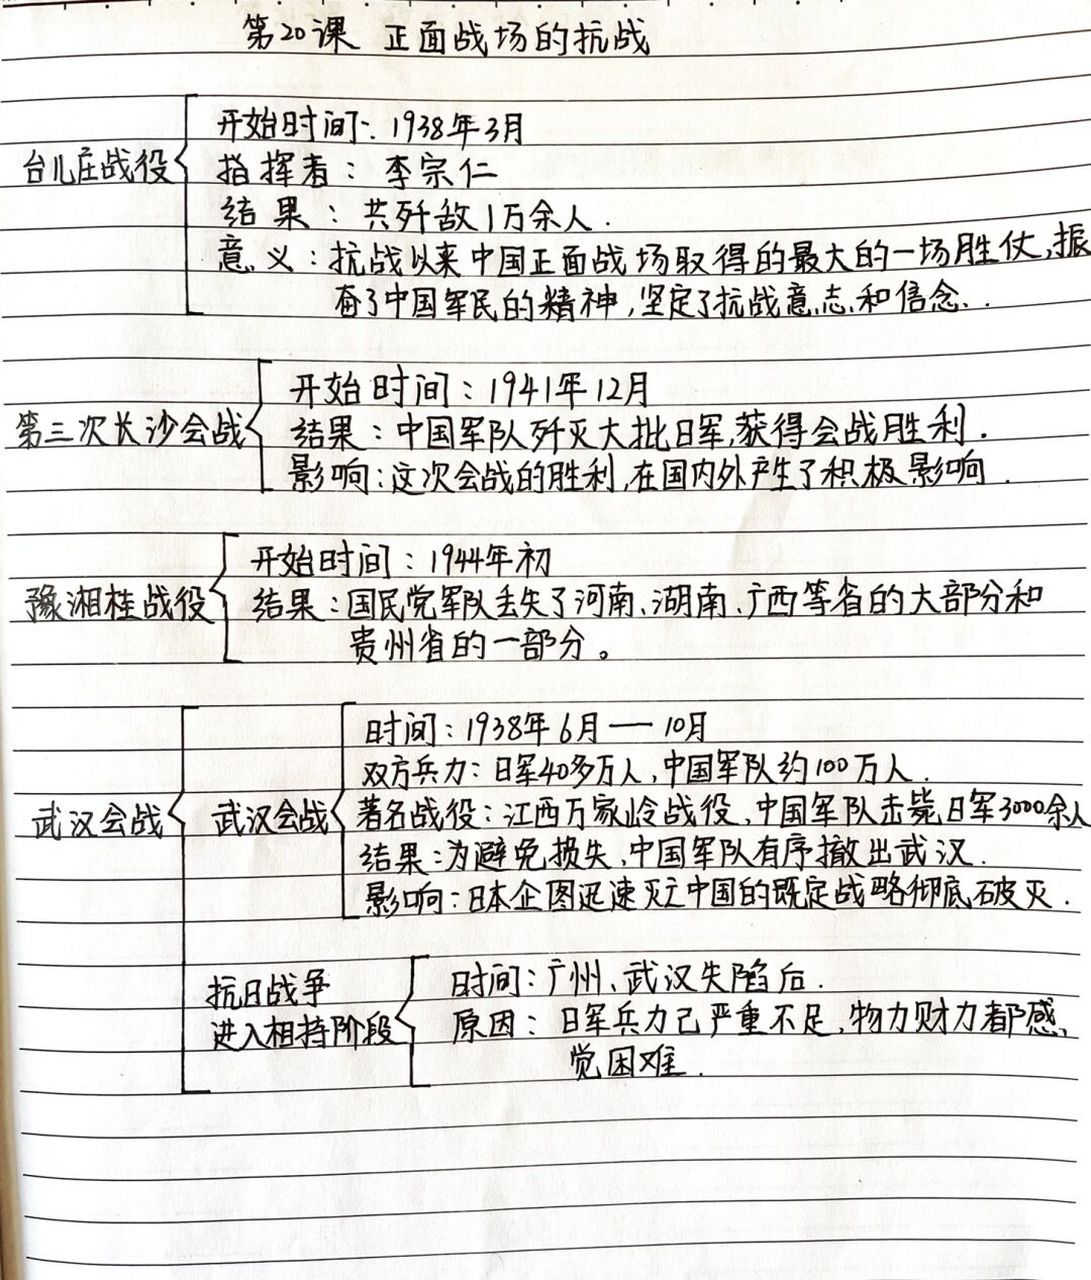 第20课 正面战场的抗战
台儿庄战役
开始时间：1938年3月
指挥者：李宗仁
结果：共歼敌1万余人.
意义：抗战以来中国正面战场取得的最大的一场胜仗,振
奋了中国军民的精神,坚定了抗战意志和信念..
第三次长沙会战
开始时间：1941年12月
结果：中国军队歼灭大批日军,获得会战胜利.
影响：这次会战的胜利,在国内外产生了积极影响.
豫湘桂战役
开始时间：1944年初
结果：国民党军队丢失了河南、湖南、广西等省的大部分和
贵州省的一部分。
武汉会战
武汉会战
时间：1938年6月——10月
双方兵力：日军40多万人,中国军队约100万人.
著名战役：江西万家岭战役,中国军队击毙日军3000余人
结果：为避免损失,中国军队有序撤出武汉.
影响：日本企图迅速灭亡中国的既定战略彻底破灭.
抗日战争
进入相持阶段
时间：广州、武汉失陷后.
原因：日军兵力已严重不足,物力财力都感
觉困难.